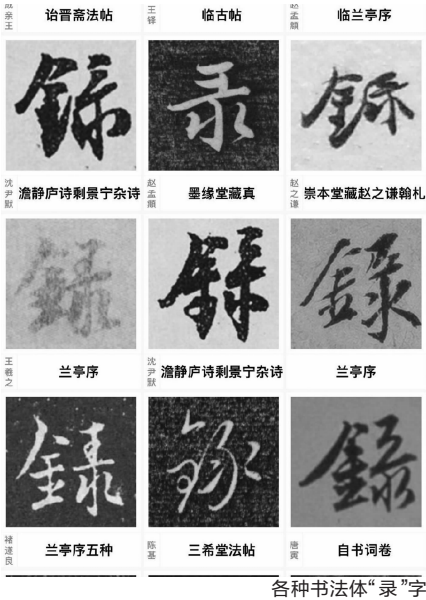 诒晋斋法帖
王铎
临古帖
赵孟頫
临兰亭序
錄
录
錄
沈尹默
澹静庐诗剩景宁杂诗
赵孟頫
墨缘堂藏真
赵之谦
崇本堂藏赵之谦翰札
錄
錄
錄
王羲之
兰亭序
沈尹默
澹静庐诗剩景宁杂诗
兰亭序
錄
錄
錄
褚遂良
兰亭序五种
陈基
三希堂法帖
唐寅
自书词卷
各种书法体“录”字